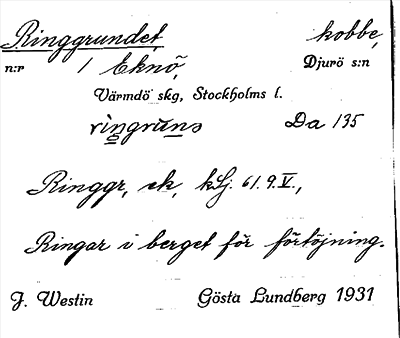 Ringgrundet, kobbe,
n:r 1 Eknö, Djurö s:n
Värmdö skg, Stockholms l.
ringruns Da 135
Ringgr, ek, kLj. 61.9.V.,
Ringar i berget för förtöjning.
J. Westin Gösta Lundberg 1931